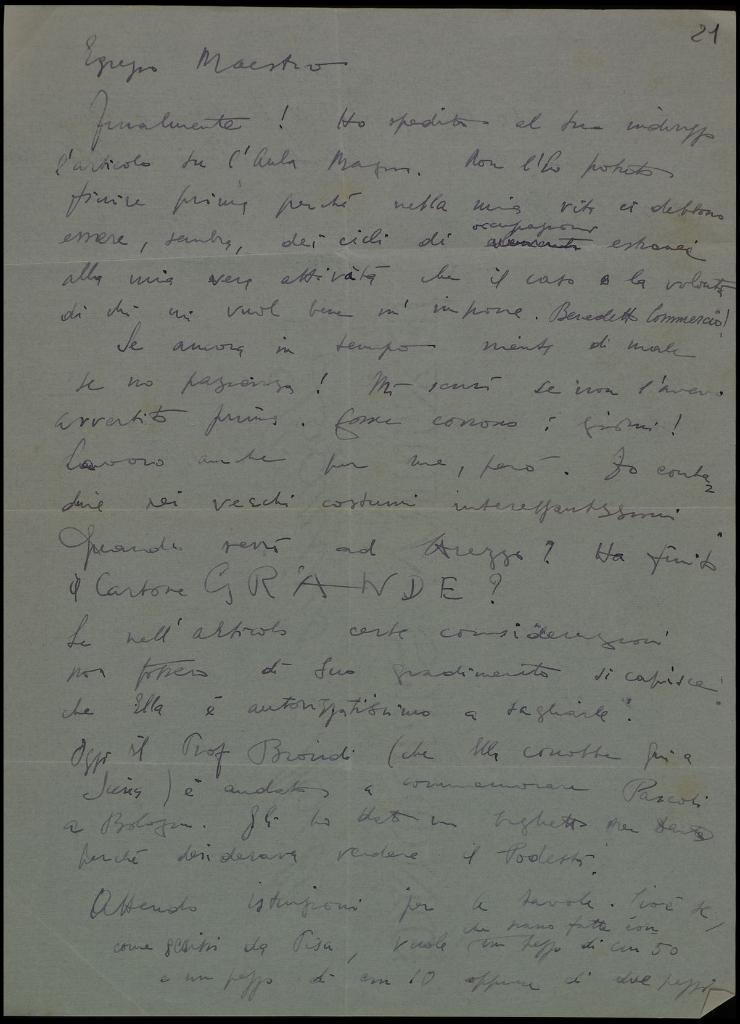 21
Egregio Maestro
Finalmente! Ho spedito al suo indirizzo
l'articolo su l'Aula Magna. Non l'ho potuto
finire prima perché nella mia vita ci debbono
essere, sembra, dei cicli di occupazioni estranei
alla mia vera attività che il caso o la volontà
di chi mi vuol bene m'impone. Benedetto Commercio!
Se ancora in tempo niente di male
se no pazienza! Mi scusi se non l'avevo
avvertito prima. Come corrono i giorni!
Lavoro anche per me, però. Io conta
dini nei vecchi costumi interessantissimi
Quando verrà ad Arezzo? Ha finito
il Cartone GRANDE?
Se nell'articolo certe considerazioni
non fossero di Suo gradimento si capisce
che Ella è autorizzatissimo a tagliarle.
Oggi il Prof Biondi (che Ella conobbe già a
Siena) è andato a commemorare Pascoli
a Bologna. Gli ho dato un biglietto per
perché desiderava vedere il Podestà.
Attendo istruzioni per le tavole. Cioè se,
come scrissi da Pisa, vuole che siano fatte con un pezzo di cm 50
e un pezzo di cm 10 oppure di due pezzi